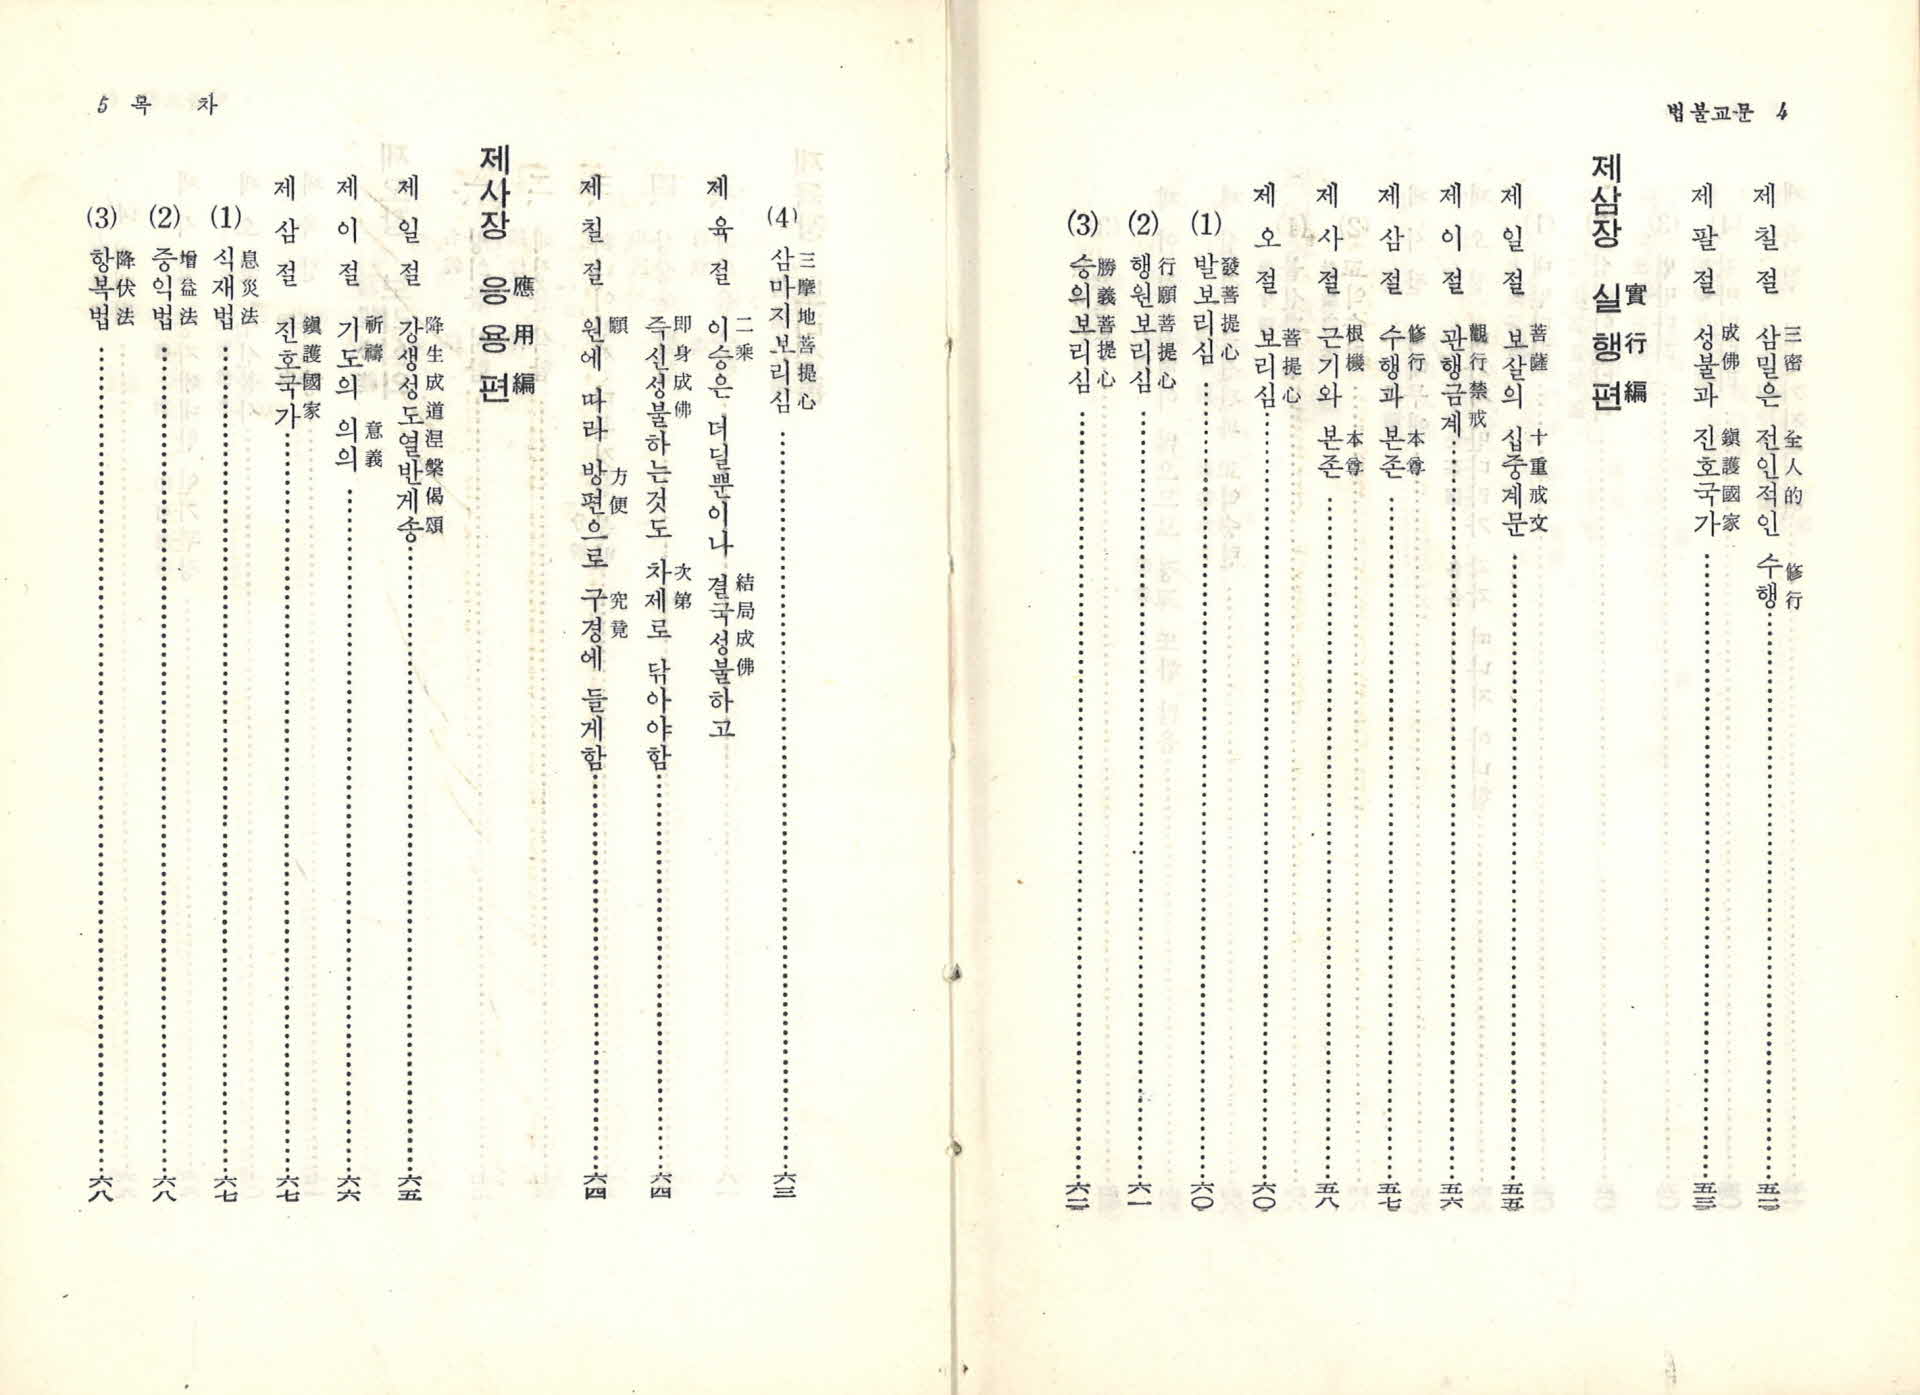 법불교문 4
제칠절 삼밀은 전인적인 수행 三密 全人的 修行 五二
제팔절 성불과 진호국가 成佛 鎭護國家 五三
제삼장 실행편 實行編
제일절 보살의 십중계문 菩薩 十重戒文 五五
제이절 관행금계 觀行禁戒 五六
제삼절 수행과 본존 修行 本尊 五七
제사절 근기와 본존 根機 本尊 五八
제오절 보리심 菩提心 六〇
(1) 발보리심 發菩提心 六〇
(2) 행원보리심 行願菩提心 六一
(3) 승의보리심 勝義菩提心 六二
5 목 차
(4) 삼마지보리심 三摩地菩提心 六三
제육절 이승은 더딜뿐이나 결국성불하고 二乘 結局成佛
즉신성불하는것도 차제로 닦아야함 即身成佛 次第 六四
제칠절 원에 따라 방편으로 구경에 들게함 願 方便 究竟 六四
제사장 응용편 應用編
제일절 강생성도열반게송 降生成道涅槃偈頌 六五
제이절 기도의 의의 祈禱 意義 六六
제삼절 진호국가 鎭護國家 六七
(1) 식재법 息災法 六七
(2) 증익법 增益法 六八
(3) 항복법 降伏法 六八